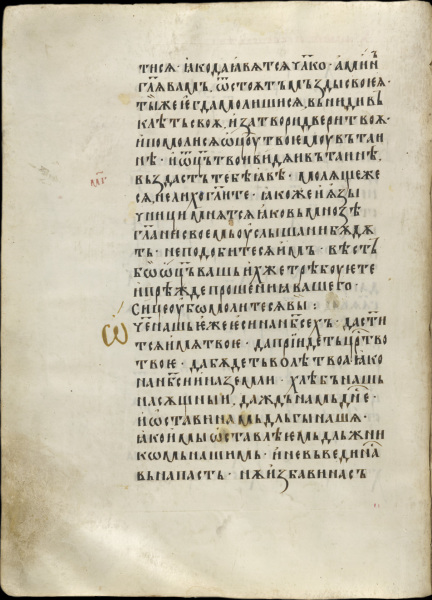 тисѧ · ꙗкода ꙗвѧтсѧ ч҃лко · аминъ
гл҃ѧ вамъ, ѿстоѧтъ мъзды своеѧ ·
ты же егда молишисѧ, вьниди вь
клѣть своѫ, и затвори двери твоѫ ·
и помолисѧ ѡц҃оу твоемоу въ таи
нѣ · и ѡц҃ъ твои видѧи въ таинѣ,
въздастъ тебѣ ꙗвѣ · молѧще же
мг҃ сѧ, не лихо гл҃ите · ꙗкоже и ѧзы
чници мнѧтсѧ ꙗко вь мнозѣ
гл҃ании своемь оуслышани бѫдѫ
ть · не подобитесѧ имъ · вѣстъ
бо ѡц҃ъ вашь ихже трѣбоуете
и прѣжде прошениꙗ вашего ·
Сице оубо молитесѧ вы :
Ѡ҃че нашь иже еси на нб҃сехъ · да ст҃и
тсѧ имѧ твое · да приидеть цр҃тво
твое · да бѫдеть волѣ твоꙗ ꙗко
на нб҃си и на земли · хлѣбъ нашь
насѫщныи · даждъ намь дн҃е ·
и ѡстави намь длъгы нашѧ ·
ꙗко и мы ѡставлѣемь длъжни
кѡмь нашимь · и не вьведи на
вь напасть · нѫ избави нас ъ